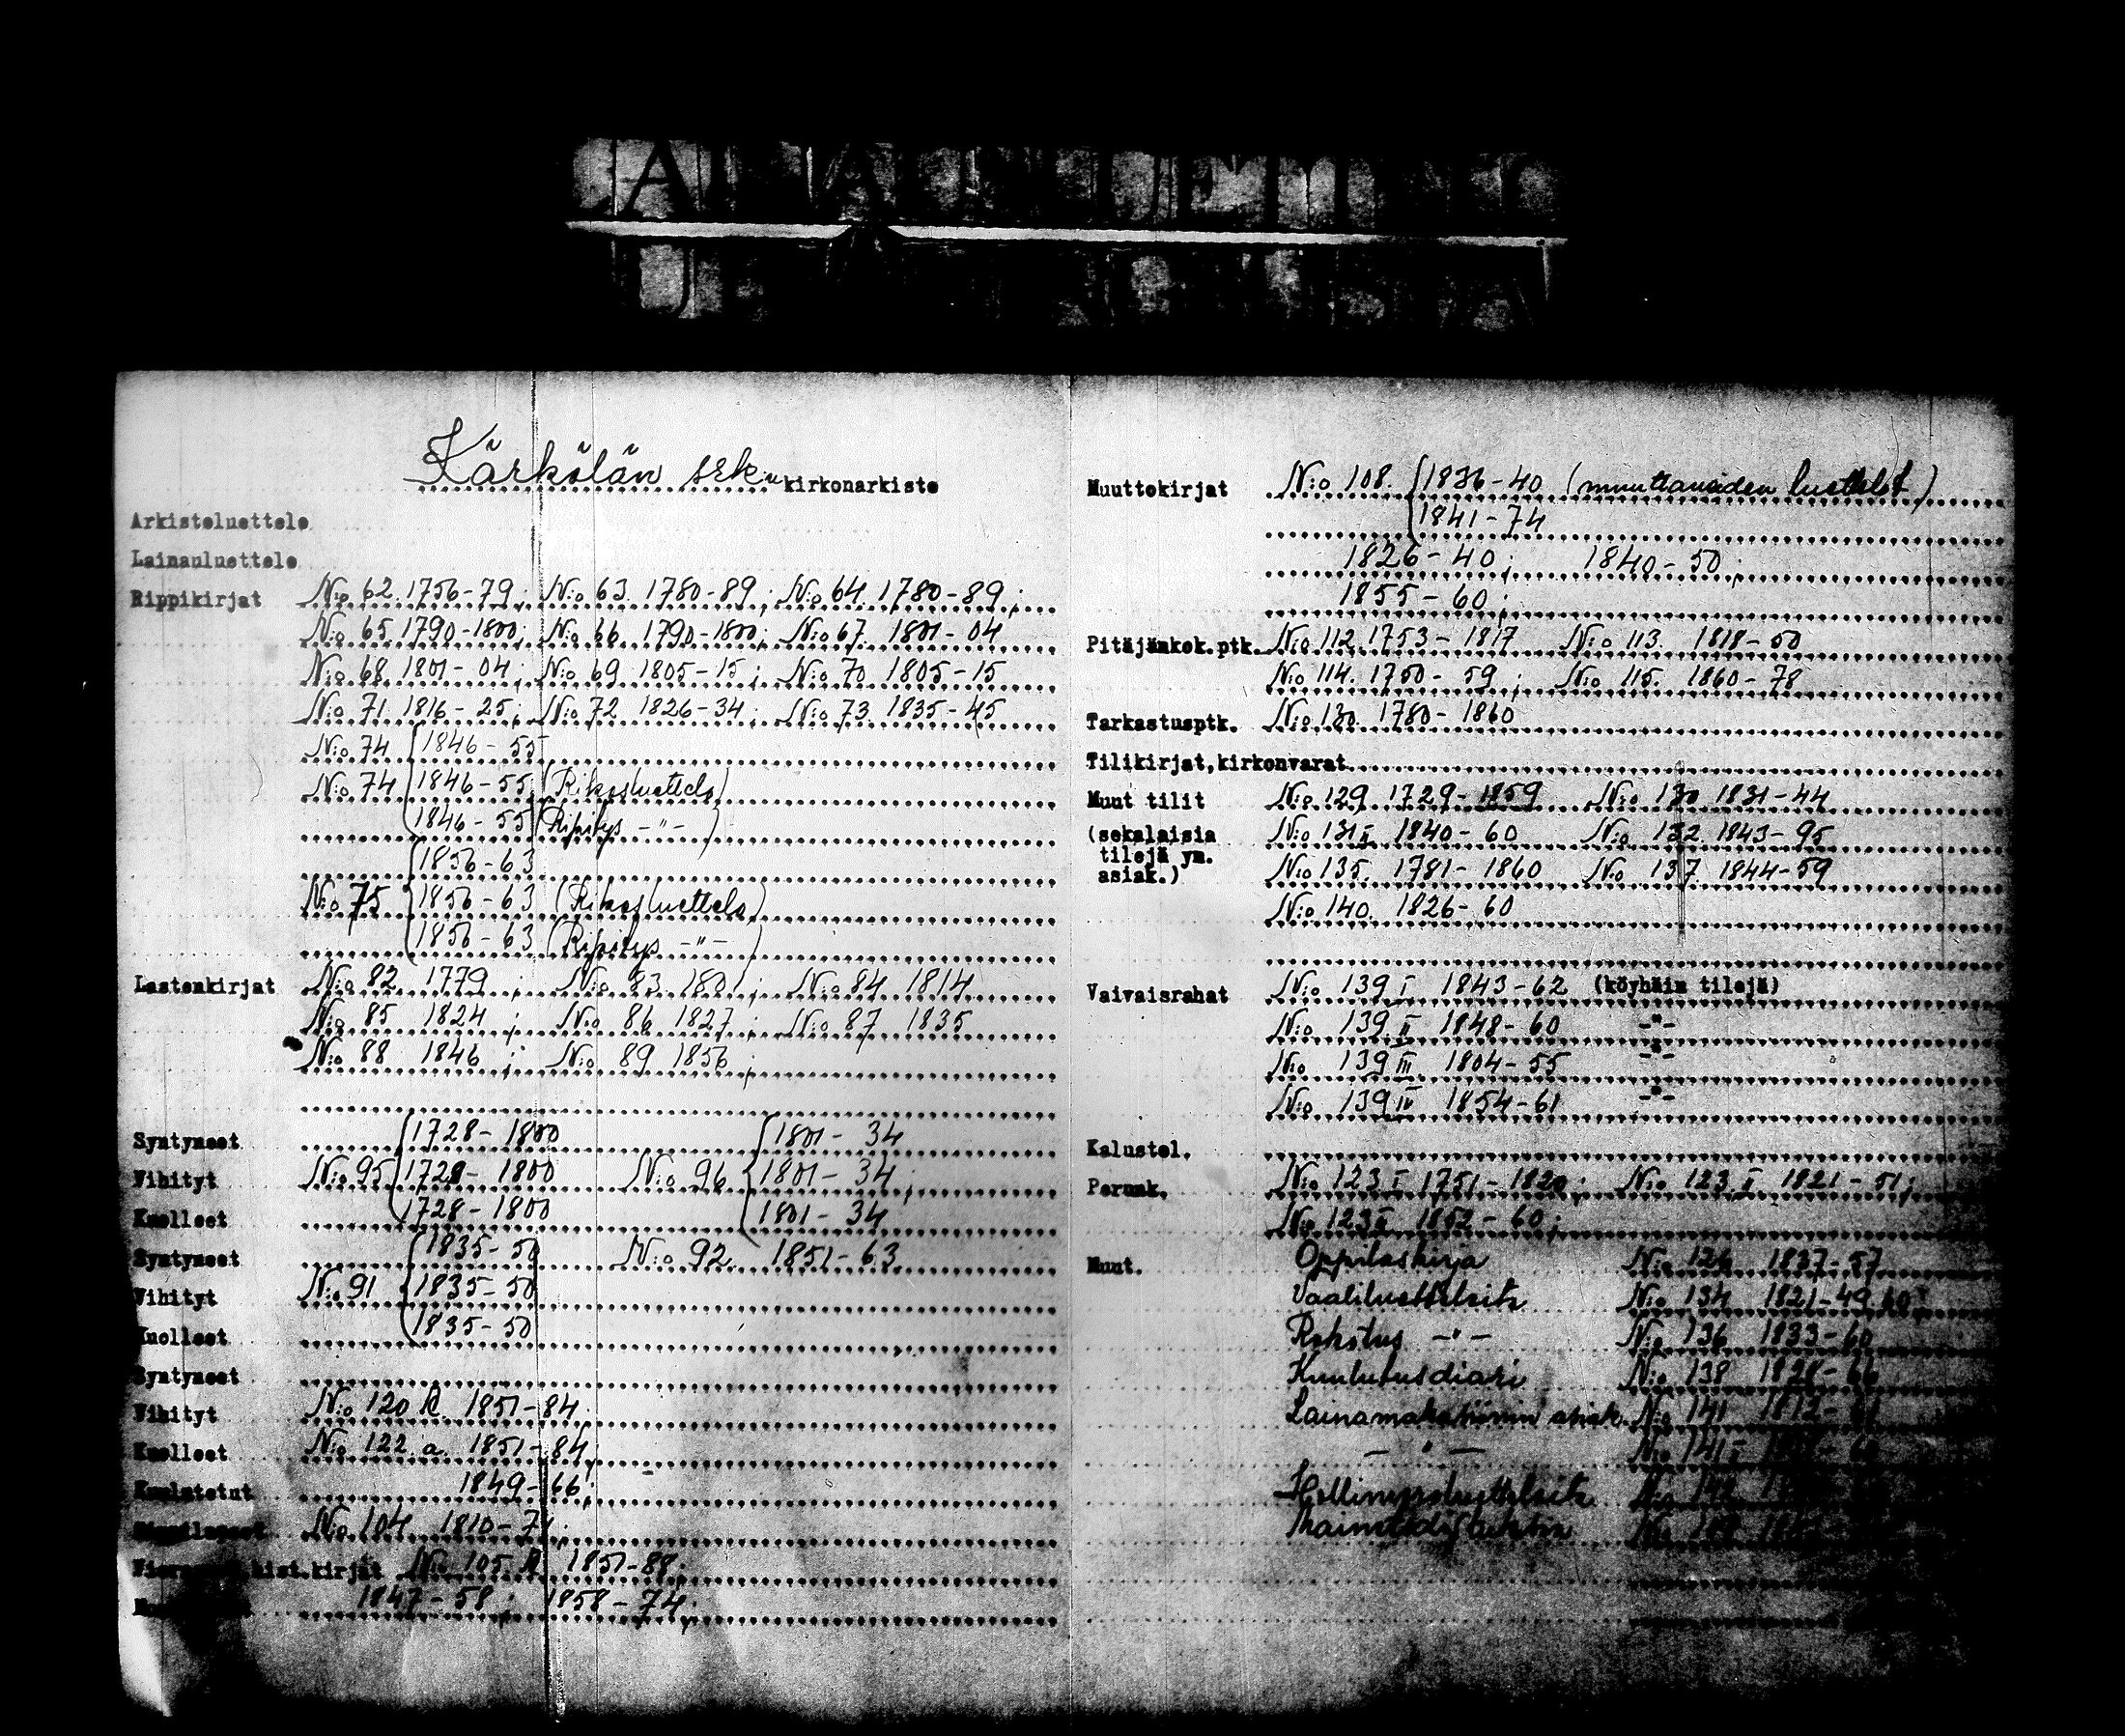 Kärkölän srk:n kirkonarkisto
Arkistoluettelo
Lainauluettelo
Rippikirjat N:o 62. 1756-79; N:o 63. 1780-89; N:o 64. 1780-89;
N:o 65. 1790-1800; N:o 66. 1790-1800; N:o 67. 1801-04
N:o 68. 1801-04; N:o 69. 1805-15; N:o 70 1805-15
N:o 71. 1816-25; N:o 72 1826-34; N:o 73. 1835-45
N:o 74 1846-55
N:o 74 1846-55 (Rikosluettelo)
1846-55 (Ripitys -"-)
1856-63
N:o 75 1856-63 (Rikosluettelo)
1856-63 (Ripitys -"-)
Lastenkirjat N:o 82. 1779; N:o 83. 1801; N:o 84 1814
N:o 85 1824; N:o 86 1827; N:o 87 1835
N:o 88 1846; N:o 89 1856;
Syntyneet 1728-1800 1801-34
Vihityt N:o 95 1728-1800 N:o 96 1801-34;
Kuolleet 1728-1800 1801-34
Syntyneet 1835-50 N:o 92. 1851-63
Vihityt N:o 91 1835-50
Kuolleet 1835-50
Syntyneet
Vihityt N:o 120 1851-84
Kuolleet N:o 122 a. 1851-84;
Kuulutetut 1849-66;
N:o 104 1810-
kirjat N:o 105 1851-88;
1847-58; 1858-74;
Muuttokirjat N:o 108. 1836-40 (muuttaneiden luettelot)
1841-74
1826-40; 1840-50;
1855-60;
Pitäjänkok.ptk. N:o 112. 1753-1817 N:o 113. 1818-50
N:o 114. 1750-59; N:o 115. 1860-78
Tarkastusptk. N:o 130. 1780-1860
Tilikirjat,kirkonvarat
Muut tilit N:o 129 1729-1859 N:o 130 1831-44
(sekalaisia N:o 131 II 1840-60 N:o 132. 1843-95
tilejä ym.
asiak.) N:o 135. 1781-1860 N:o 137. 1844-59
N:o 140. 1826-60
Vaivaisrahat N:o 139 I 1843-62 (köyhäin tilejä)
N:o 139 II 1848-60 -"-
N:o 139 III 1804-55 -"-
N:o 139 IV 1854-61 -"-
Kalustol.
Perunk. N:o 123 I 1751-1820; N:o 123 II 1821-51;
N:o 123 1852-60;
Muut. Oppilaskirja N:o 126 1837-57
Vaaliluetteloita N:o 134 1821-49
Rokotus -"- N:o 136 1833-60
Kuulutusdiari N:o 138 1828-66
Lainamakasiinin asiak. N:o 141 1812-
-"- N:o 141